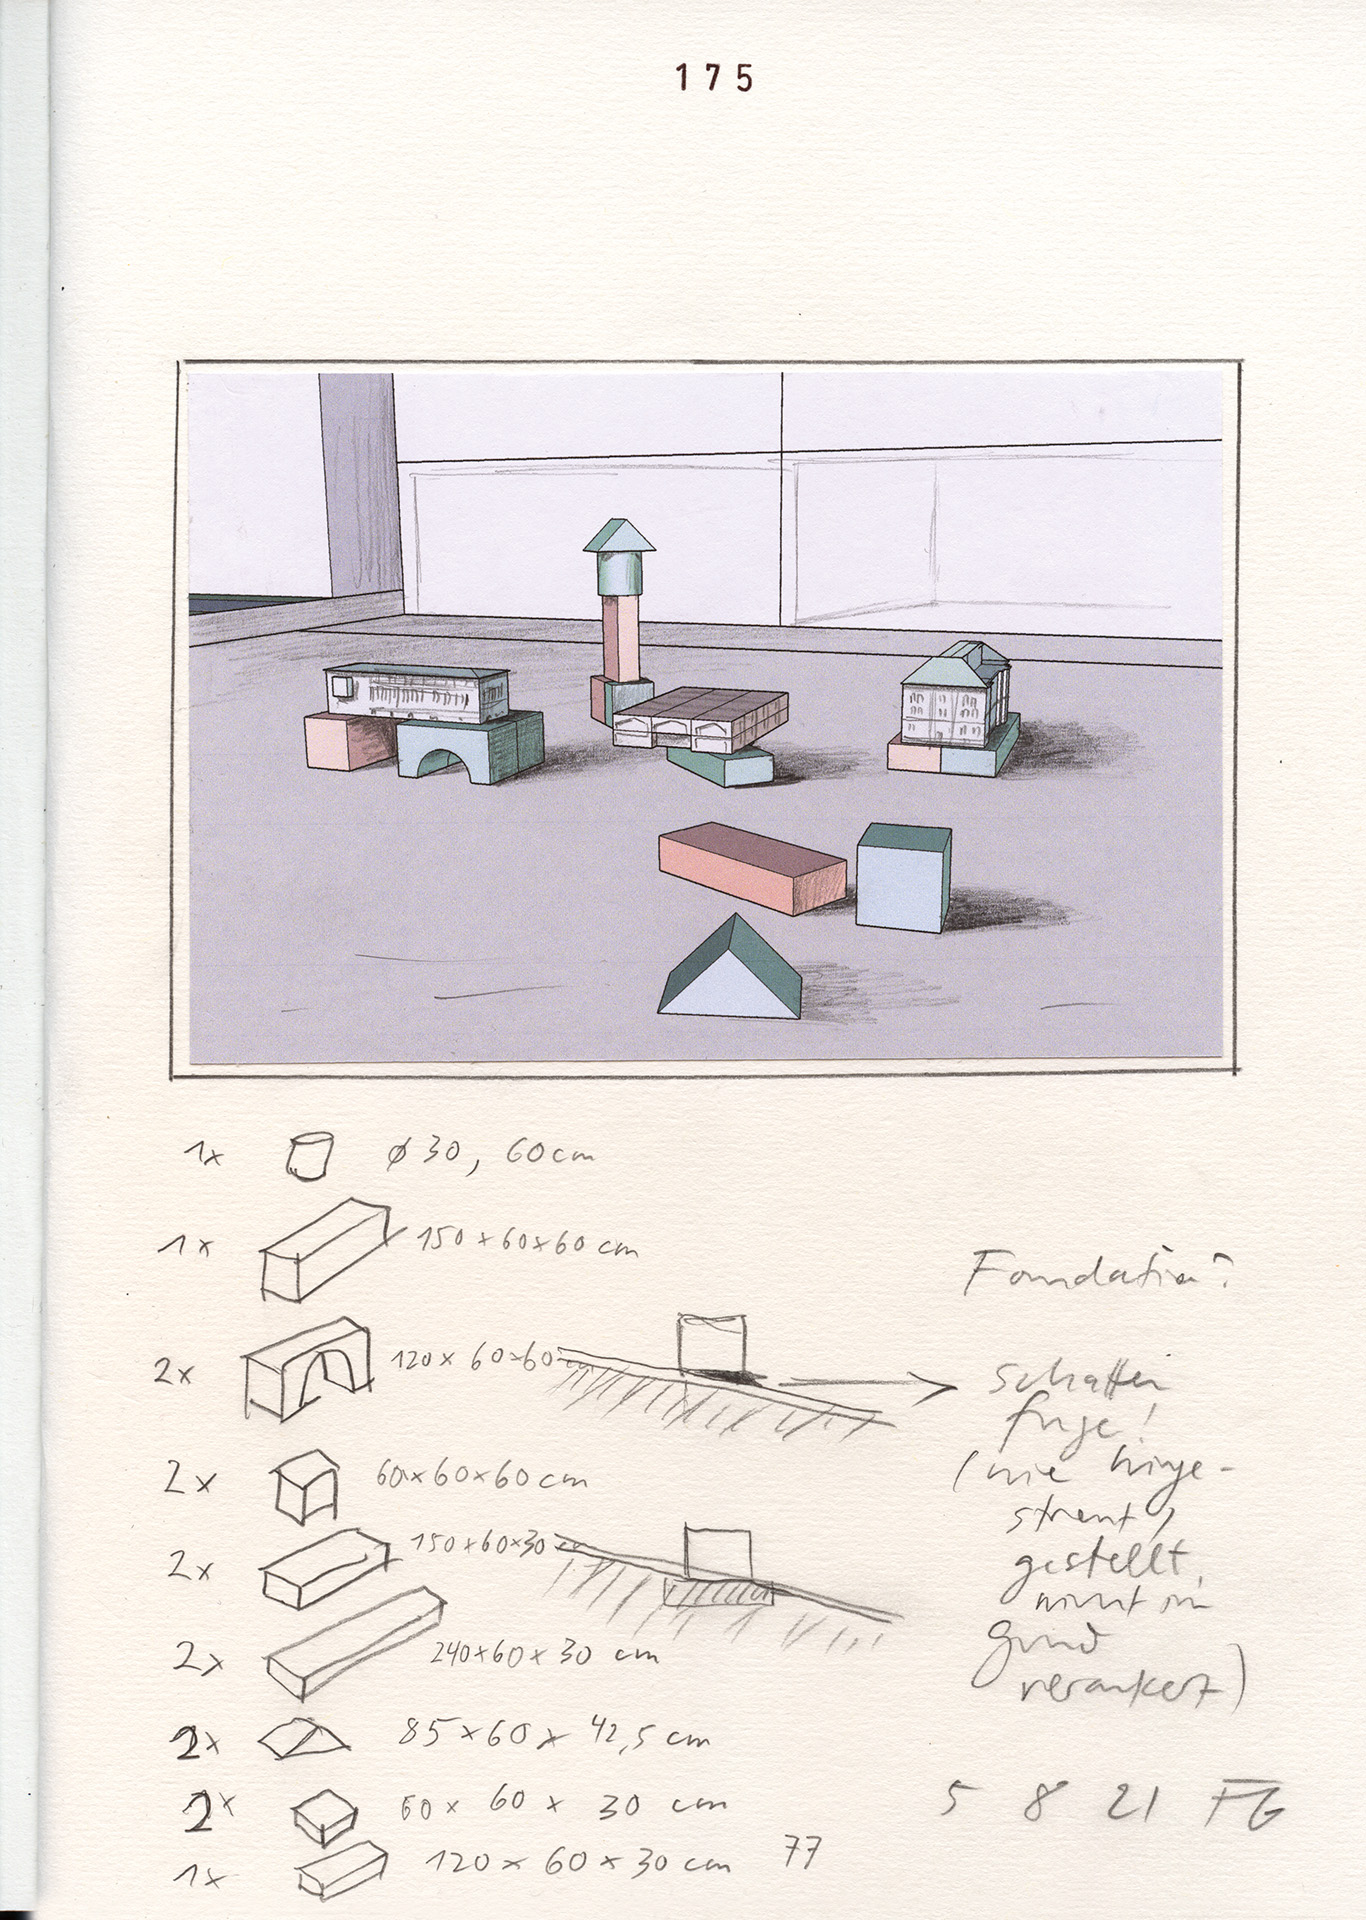 175
1x ø 30, 60 cm
1x 150 x 60 x 60 cm
2x 120 x 60 x 60 cm
2x 60 x 60 x 60 cm
2x 150 x 60 x 30 cm
2x 240 x 60 x 30 cm
2x 85 x 60 x 42,5 cm
2x 60 x 60 x 30 cm
1x 120 x 60 x 30 cm 77
Foundation?
schatten
fuge!
(wie hinge-
streut,
gestellt,
nicht im
grund
verankert)
5 8 21 FG